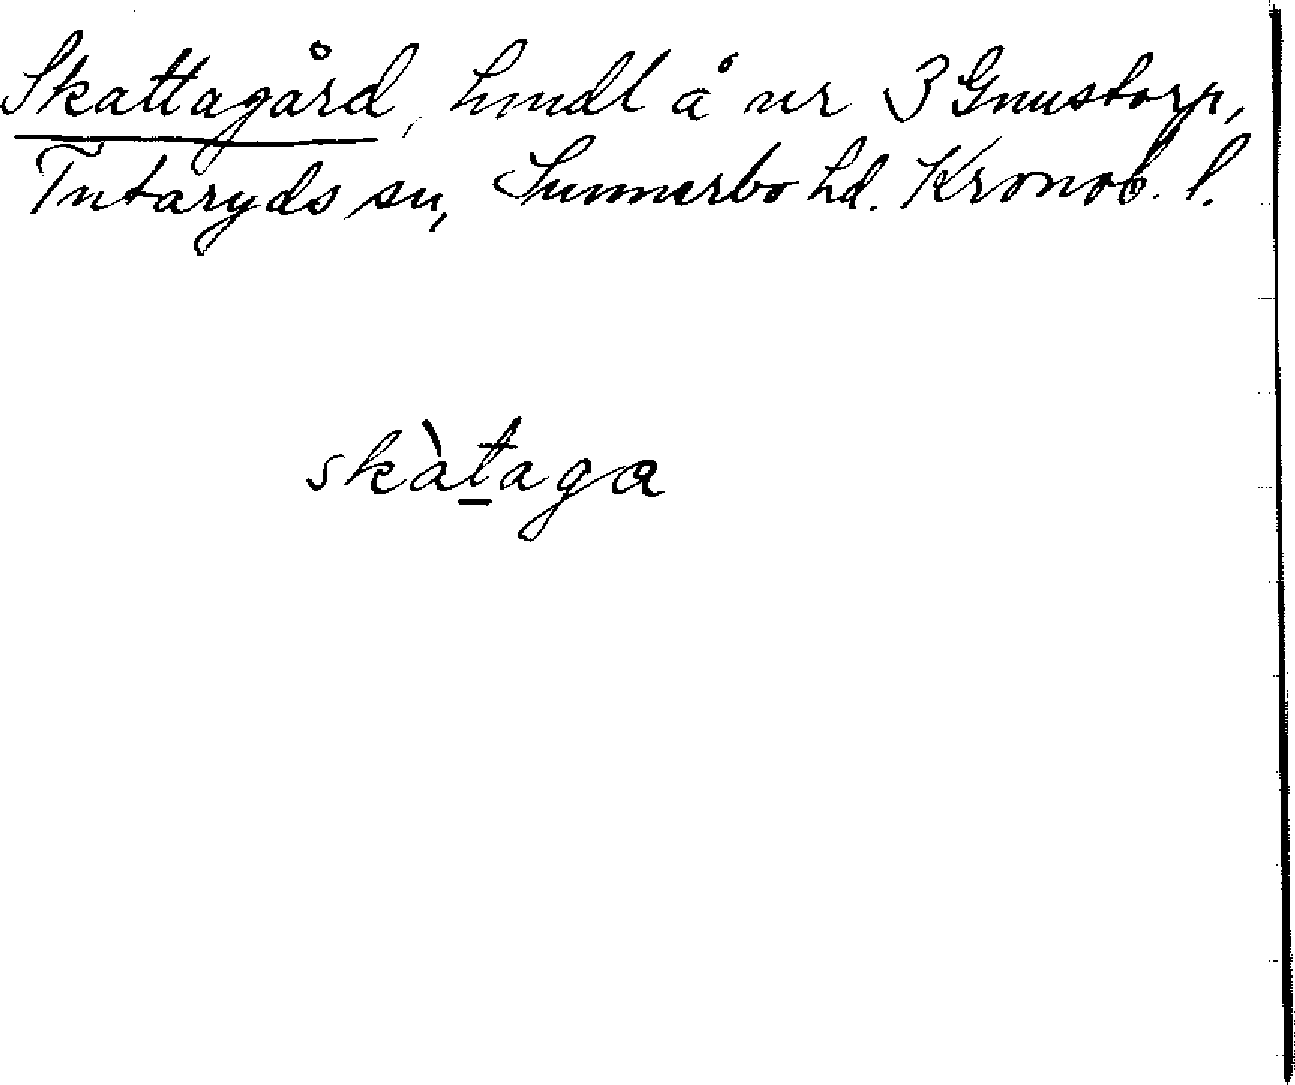 Skattagård, hmdl å nr 3 Gnustorp,
Tutaryds sn, Sunnerbo hd. Kronob. l.
skàt̲aga